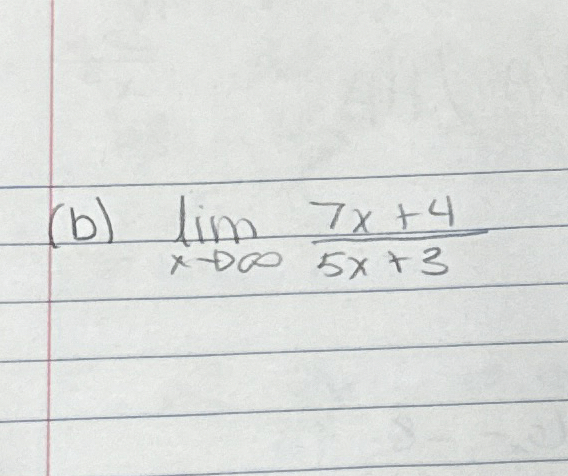 (b) lim x→∞ 7x + 4
5x + 3